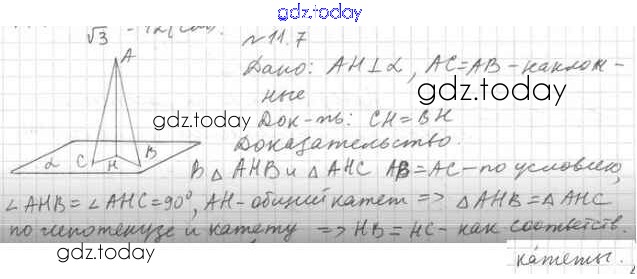 gdz.today
√3
№11.7
A
Дано: AH⊥α, AC=AB-наклон-
ные
gdz.today
gdz.today
Док-ть: CH=BH
Доказательство.
α C H B
В △AHB и △AHC AB=AC-по условию,
∠AHB=∠AHC=90°, AH-общий катет => △AHB=△AHC
по гипотенузе и катету => HB=HC-как соответств.
gdz.today
катеты.